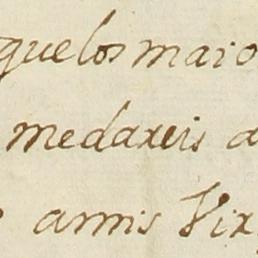 quelos maio
medaxeis a
amis Vix